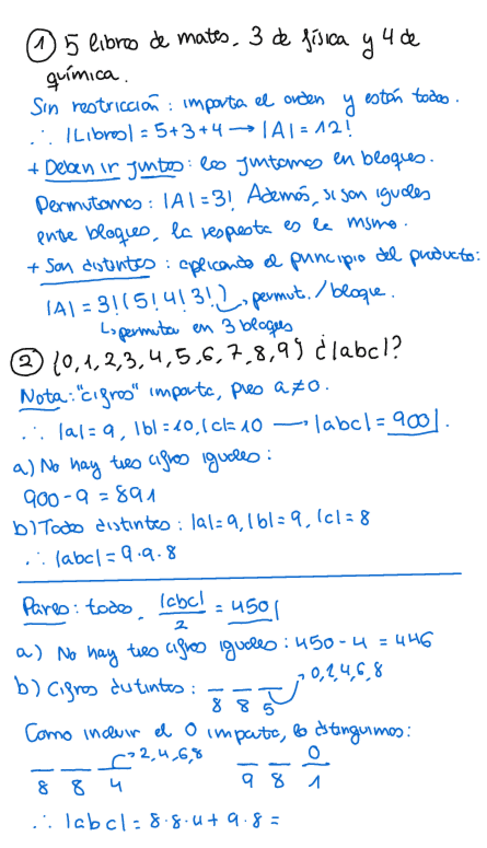 ① 5 libros de mates. 3 de física y 4 de
química.
Sin restricción: importa el orden y están todos.
∴ |Libros| = 5+3+4 → |A| = 12!
+ Deben ir juntos: los juntamos en bloques.
Permutamos: |A| = 3! Además, si son iguales
entre bloques, la respuesta es la misma.
+ Son distintos: aplicando el principio del producto:
|A| = 3!(5!4!3!) → permut./bloque.
↳ permutar en 3 bloques
② {0,1,2,3,4,5,6,7,8,9} ¿|abc|?
Nota: "cifras" importa, pues a≠0.
∴ |a| = 9, |b| = 10, |c| = 10 → |abc| = 900.
a) No hay tres cifras iguales:
900 - 9 = 891
b) Todos distintos: |a| = 9, |b| = 9, |c| = 8
∴ |abc| = 9·9·8
Pares: todos. |abc|/2 = 450
a) No hay tres cifras iguales: 450 - 4 = 446
b) Cifras distintas: 8 8 5 → 0,2,4,6,8
Como incluir el 0 importa, lo distinguimos:
→ 2,4,6,8 0
8 8 4 9 8 1
∴ |abc| = 8·8·4 + 9·8 =